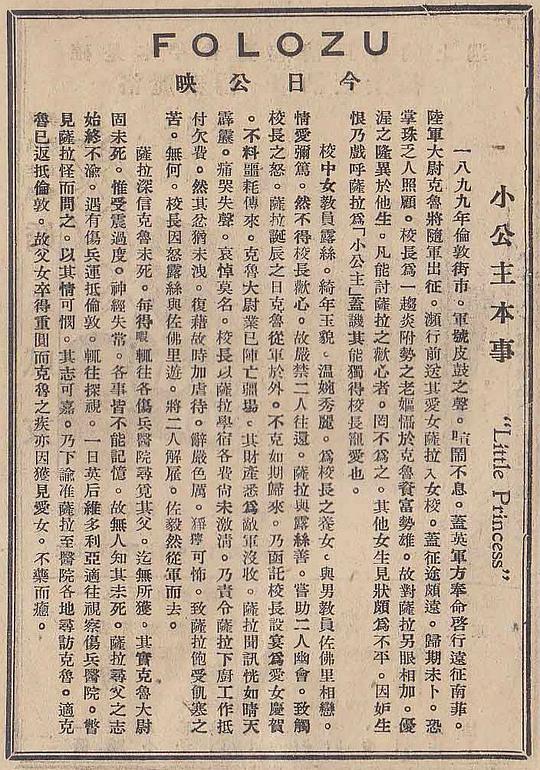 FOLOZU
今日公映
小公主本事 “Little Princess”
一八九九年倫敦街市。軍號皮鼓之聲。喧鬧不息。蓋英軍方奉命啓行遠征南菲。
陸軍大尉克魯將隨軍出征。瀕行前送其愛女薩拉入女校。蓋征途頗遠。歸期未卜。恐
掌珠乏人照顧。校長爲一趨炎附勢之老嫗懾於克魯資富勢雄。故對薩拉另眼相加。優
渥之隆異於他生。凡能討薩拉之歡心者。罔不爲之。其他女生見狀頗爲不平。因妒生
恨乃戲呼薩拉爲「小公主」蓋譏其能獨得校長寵愛也。
校中女教員露絲。綺年玉貌。温婉秀麗。爲校長之養女。與男教員佐佛里相戀。
情愛彌篤。然不得校長歡心。故嚴禁二人往還。薩拉與露絲善。嘗助二人幽會。致觸
校長之怒。薩拉誕辰之日克魯從軍於外。不克如期歸來。乃函託校長設宴爲愛女慶賀
。不料噩耗傳來。克魯大尉業已陣亡疆場。其財產悉爲敵軍沒收。薩拉聞訊恍如晴天
霹靂。痛哭失聲。哀悼莫名。校長以薩拉學宿各費尙未激清。乃責令薩拉下廚工作抵
付欠費。然其忿猶未洩。復藉故時加虐待。辭嚴色厲。猙獰可怖。致薩拉飽受飢寒之
苦。無何。校長因怒露絲與佐佛里遊。將二人解雇。佐毅然從軍而去。
薩拉深信克魯未死。每得暇輒往各傷兵醫院尋覓其父。迄無所獲。其實克魯大尉
固未死。惟受震過度。神經失常。各事皆不能記憶。故無人知其未死。薩拉尋父之志
始終不渝。遇有傷兵運抵倫敦。輒往探視。一日英后維多利亞適往視察傷兵醫院。瞥
見薩拉怪而問之。以其情可憫。其志可嘉。乃下諭准薩拉至醫院各地尋訪克魯。適克
魯已返抵倫敦。故父女卒得重圓而克魯之疾亦因獲見愛女。不藥而癒。